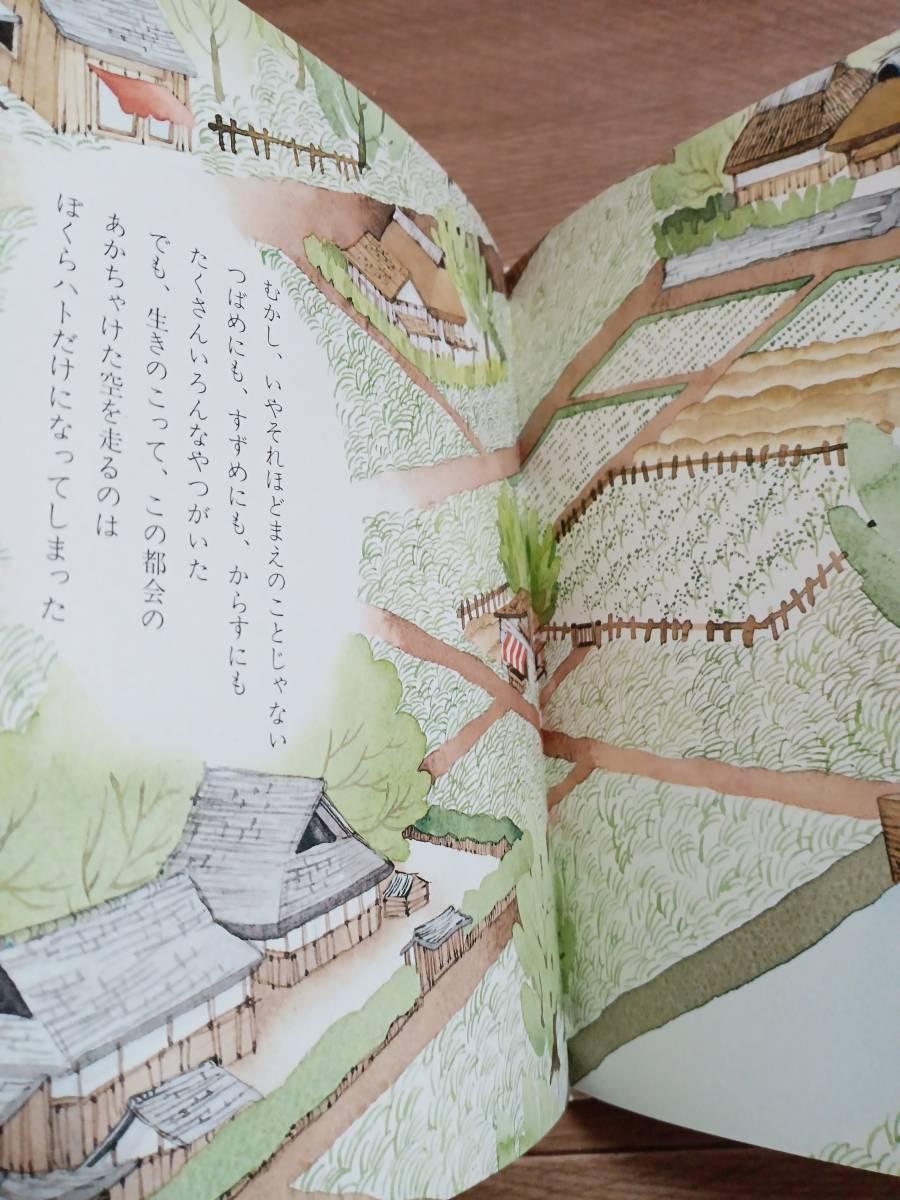 むかし、いやそれほどまえのことじゃない
つばめにも、すずめにも、からすにも
たくさんいろんなやつがいた
でも、生きのこって、この都会の
あかちゃけた空を走るのは
ぼくらハトだけになってしまった